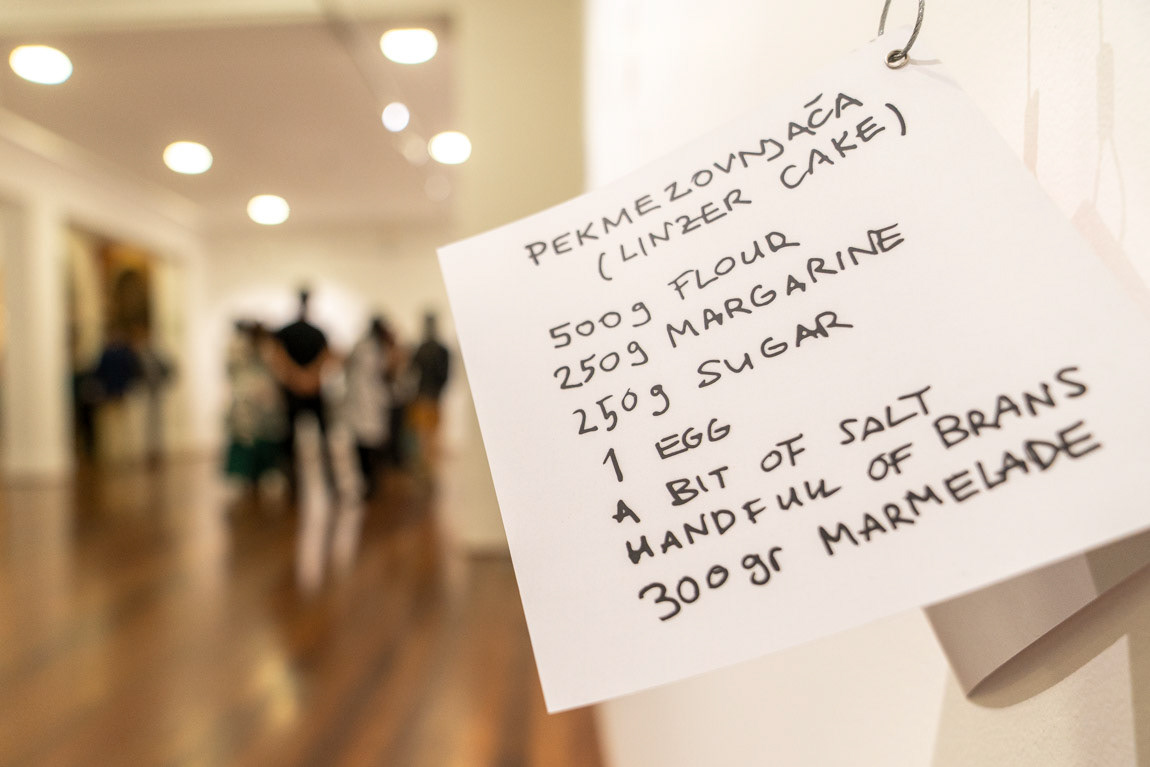 PEKMEZOVNJAČA
(LINZER CAKE)
500g FLOUR
250g MARGARINE
250g SUGAR
1 EGG
A BIT OF SALT
HANDFULL OF BRANS
300gr MARMELADE